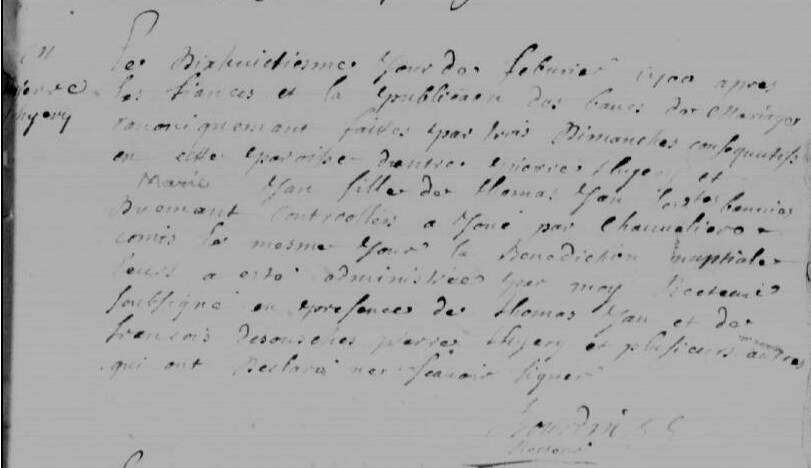 Le Dixhuictiesme Jour de feburier 1700 apres
les fiances et la publiction des bancs de Mariage
canoniquemant faites par trois Dimanches consequtifs
en cette paroisse d'entre pierre thyery et
Marie Jan fille de thomas Jan les bannies
Duemant controollees a Joué par Chauueliere
comis le mesme Jour la Benediction nuptiale
leurs a esté administrée par moy Recteur
soubsigné en presence de thomas Jan et de
francois desousches pierre thyery et plusieurs autres
qui ont Declaré ne scauoir signer
Recteur